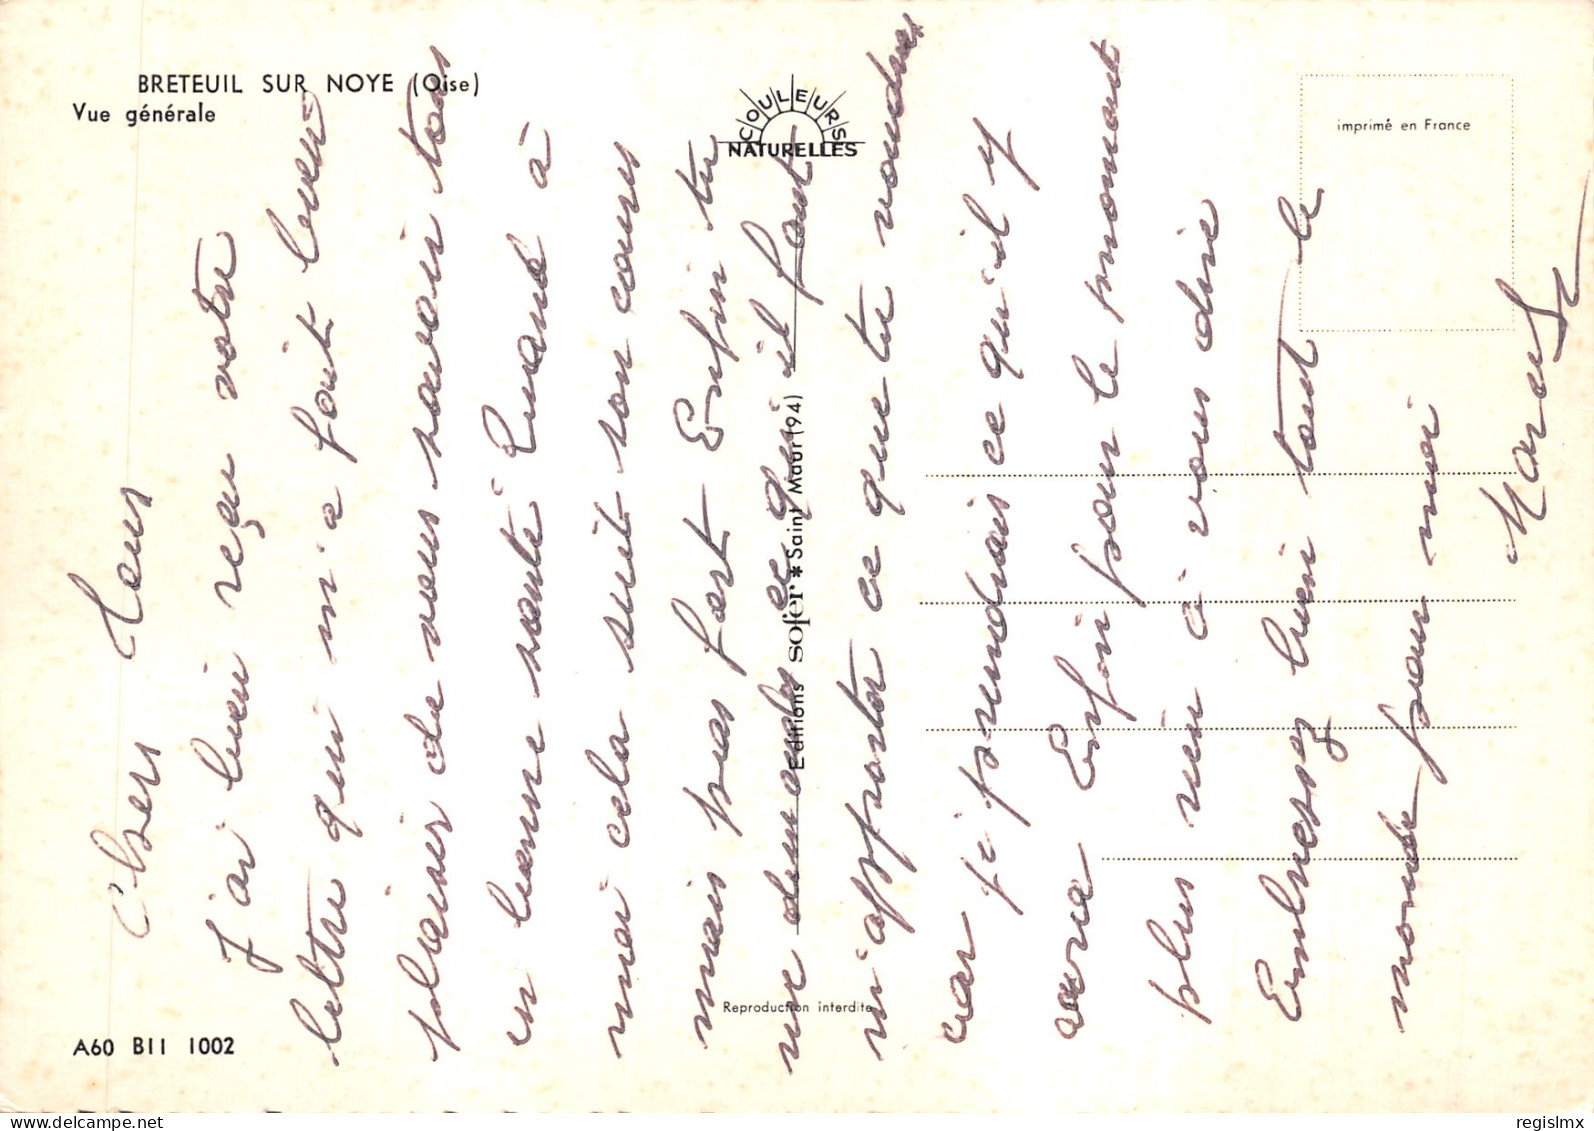 BRETEUIL SUR NOYE (Oise)
Vue générale
COULEURS
NATURELLES
imprimé en France
Editions sofer * Saint Maur (94)
Reproduction interdite
A60 B11 1002
Chers Tous
J'ai bien reçu votre
lettre qui m'a fait bien
plaisir de vous savoir tous
en bonne santé Quand à
moi cela suit son cours
mais pas fort Enfin tu
me demandes ce qui il faut
m'apporter ce que tu voudras
car je prendrais ce qu'il y
aura Enfin pour le momont
plus rien à vous dire
Embrassez bien tout le
monde pour moi
regislmx